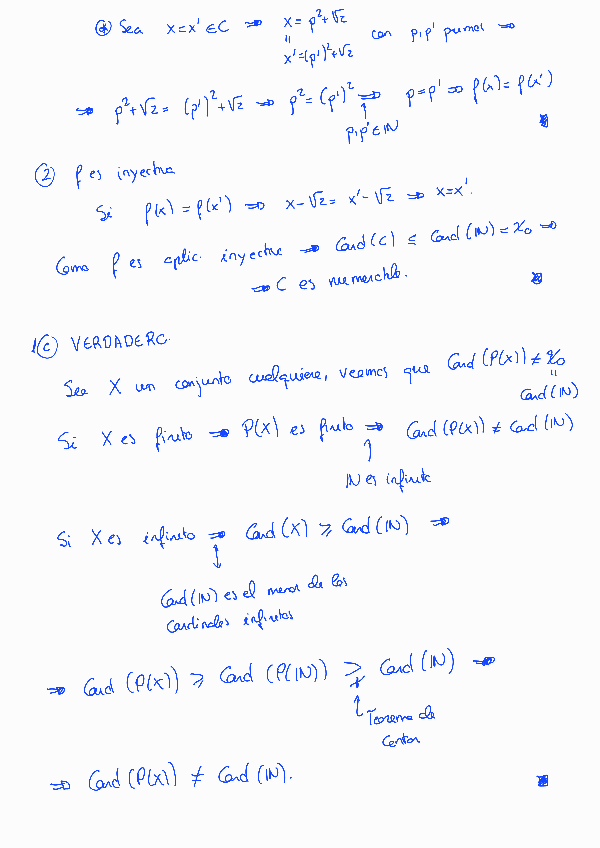 (*) Sea x=x' ∈ C ⇒ x = p²+√2
=
x' = (p')²+√2 con p,p' primos ⇒
⇒ p²+√2 = (p')²+√2 ⇒ p² = (p')² ⇒ p=p' ⇒ f(x) = f(x')
↑
p,p' ∈ ℕ
② f es inyectiva
Si f(x) = f(x') ⇒ x-√2 = x'-√2 ⇒ x=x'.
Como f es aplic. inyectiva ⇒ Card(C) ≤ Card(ℕ) = ℵ₀ ⇒
⇒ C es numerable.
1ⓒ VERDADERO.
Sea X un conjunto cualquiera, veamos que Card(P(X)) ≠ ℵ₀
=
Card(ℕ)
Si X es finito ⇒ P(X) es finito ⇒ Card(P(X)) ≠ Card(ℕ)
↑
ℕ es infinito
Si X es infinito ⇒ Card(X) ≥ Card(ℕ) ⇒
↕
Card(ℕ) es el menor de los
cardinales infinitos
⇒ Card(P(X)) ≥ Card(P(ℕ)) ≩ Card(ℕ) ⇒
↑
Teorema de
Cantor
⇒ Card(P(X)) ≠ Card(ℕ).